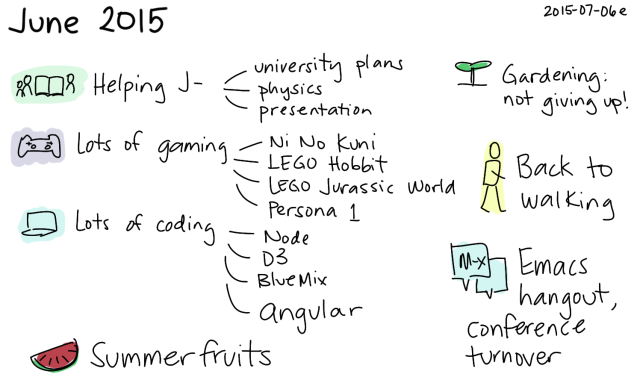 June 2015
2015-07-06e
Helping J-
university plans
physics
presentation
Lots of gaming
Ni No Kuni
LEGO Hobbit
LEGO Jurassic World
Persona 1
Lots of coding
Node
D3
BlueMix
Angular
Summer fruits
Gardening:
not giving up!
Back to
walking
M-x
Emacs
hangout,
conference
turnover